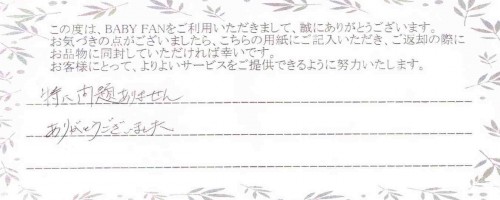 この度は、BABY FANをご利用いただきまして、誠にありがとうございます。
お気づきの点がございましたら、こちらの用紙にご記入いただき、ご返却の際に
お品物に同封していただければ幸いです。
お客様にとって、よりよいサービスをご提供できるように努力いたします。
特に問題ありません
ありがとうございました